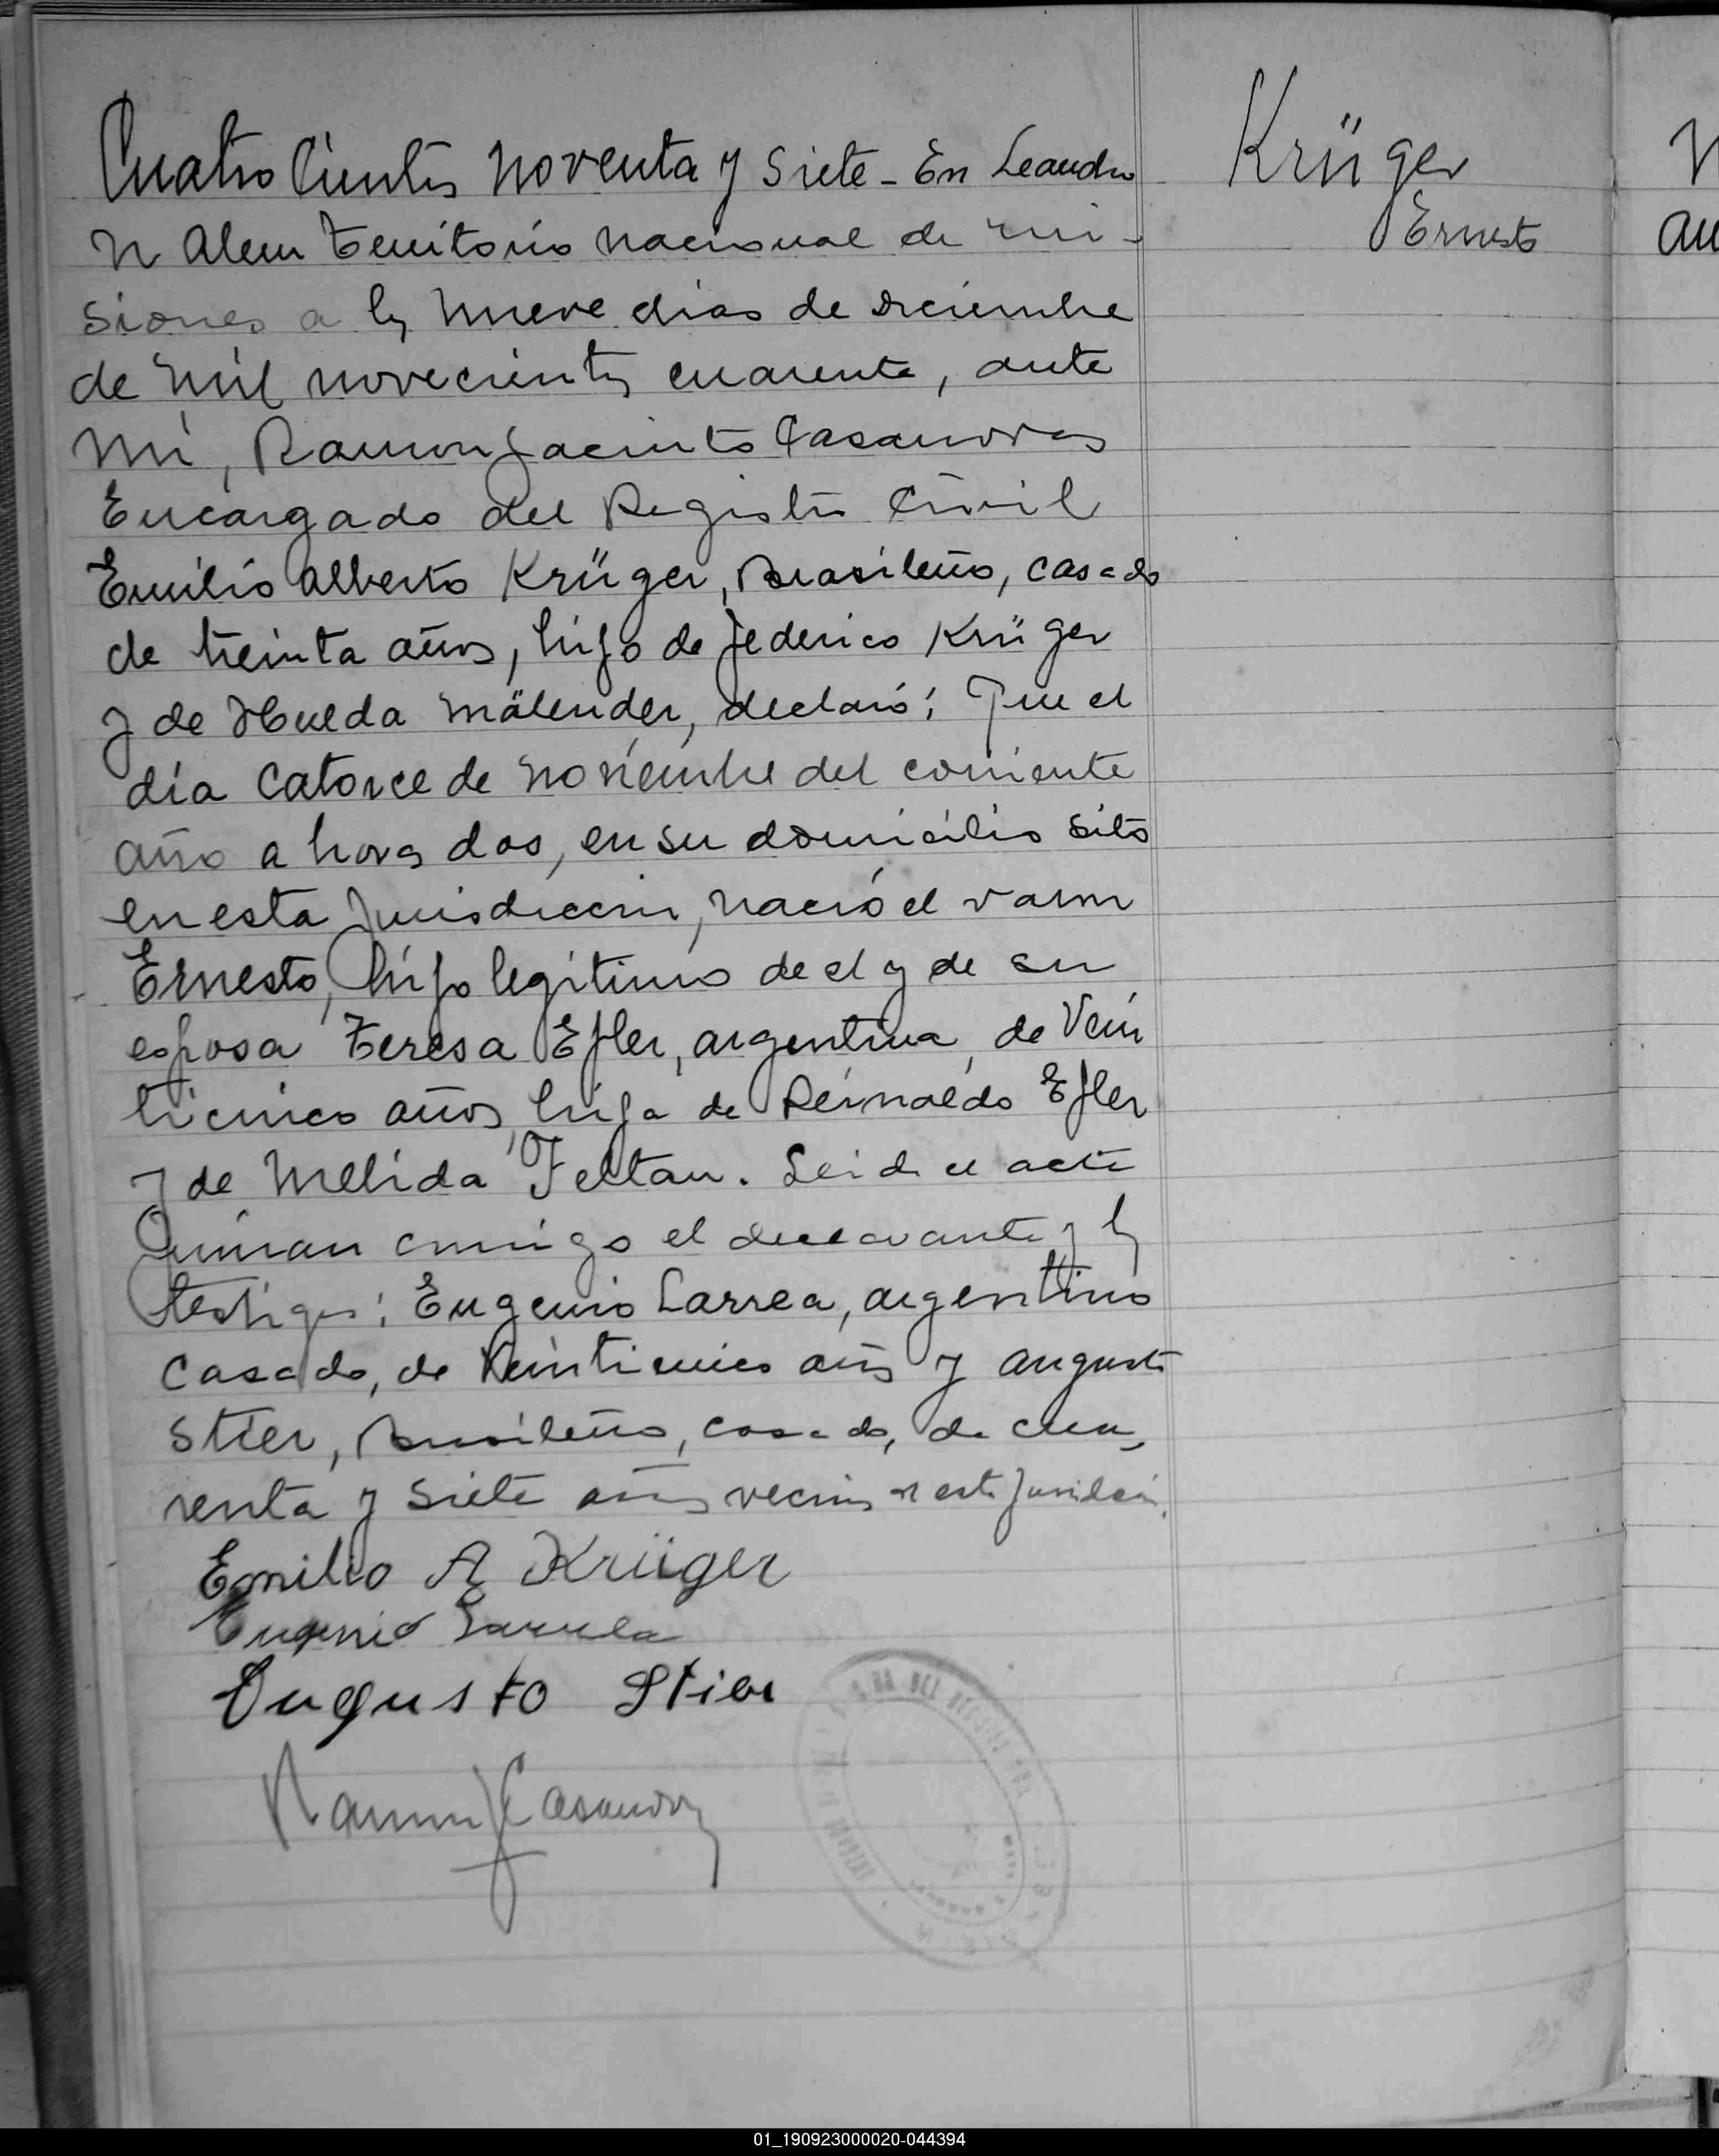 Cuatro Cientos noventa y Siete - En Leandro
N Alem Territorio nacional de mi-
siones a los nueve dias de diciembre
de mil novecientos cuarenta, ante
mi, Ramon Jacinto Casanovas
Encargado del Registro Civil
Emilio Alberto Krüger, Brasileño, casado
de treinta años, hijo de Federico Krüger
y de Hulda Mälender, declaró: Que el
día catorce de noviembre del corriente
año a horas dos, en su domicilio sito
en esta Jurisdiccion, nació el varon
Ernesto, hijo legitimo de el y de su
esposa Teresa Efler, argentina, de Vein
ticinco años, hija de Reinaldo Efler
y de Melida Feltan. Leida el acta
firman conmigo el declarante y los
testigos: Eugenio Larrea, argentino
casado, de Veinticinco años y Augusto
Stier, Brasileño, casado, de cua-
renta y siete años vecinos de esta
Emilio A Krüger
Eugenio Larrea
Augusto Stier
Ramon J Casanovas
Krüger
Ernesto
01_190923000020-044394